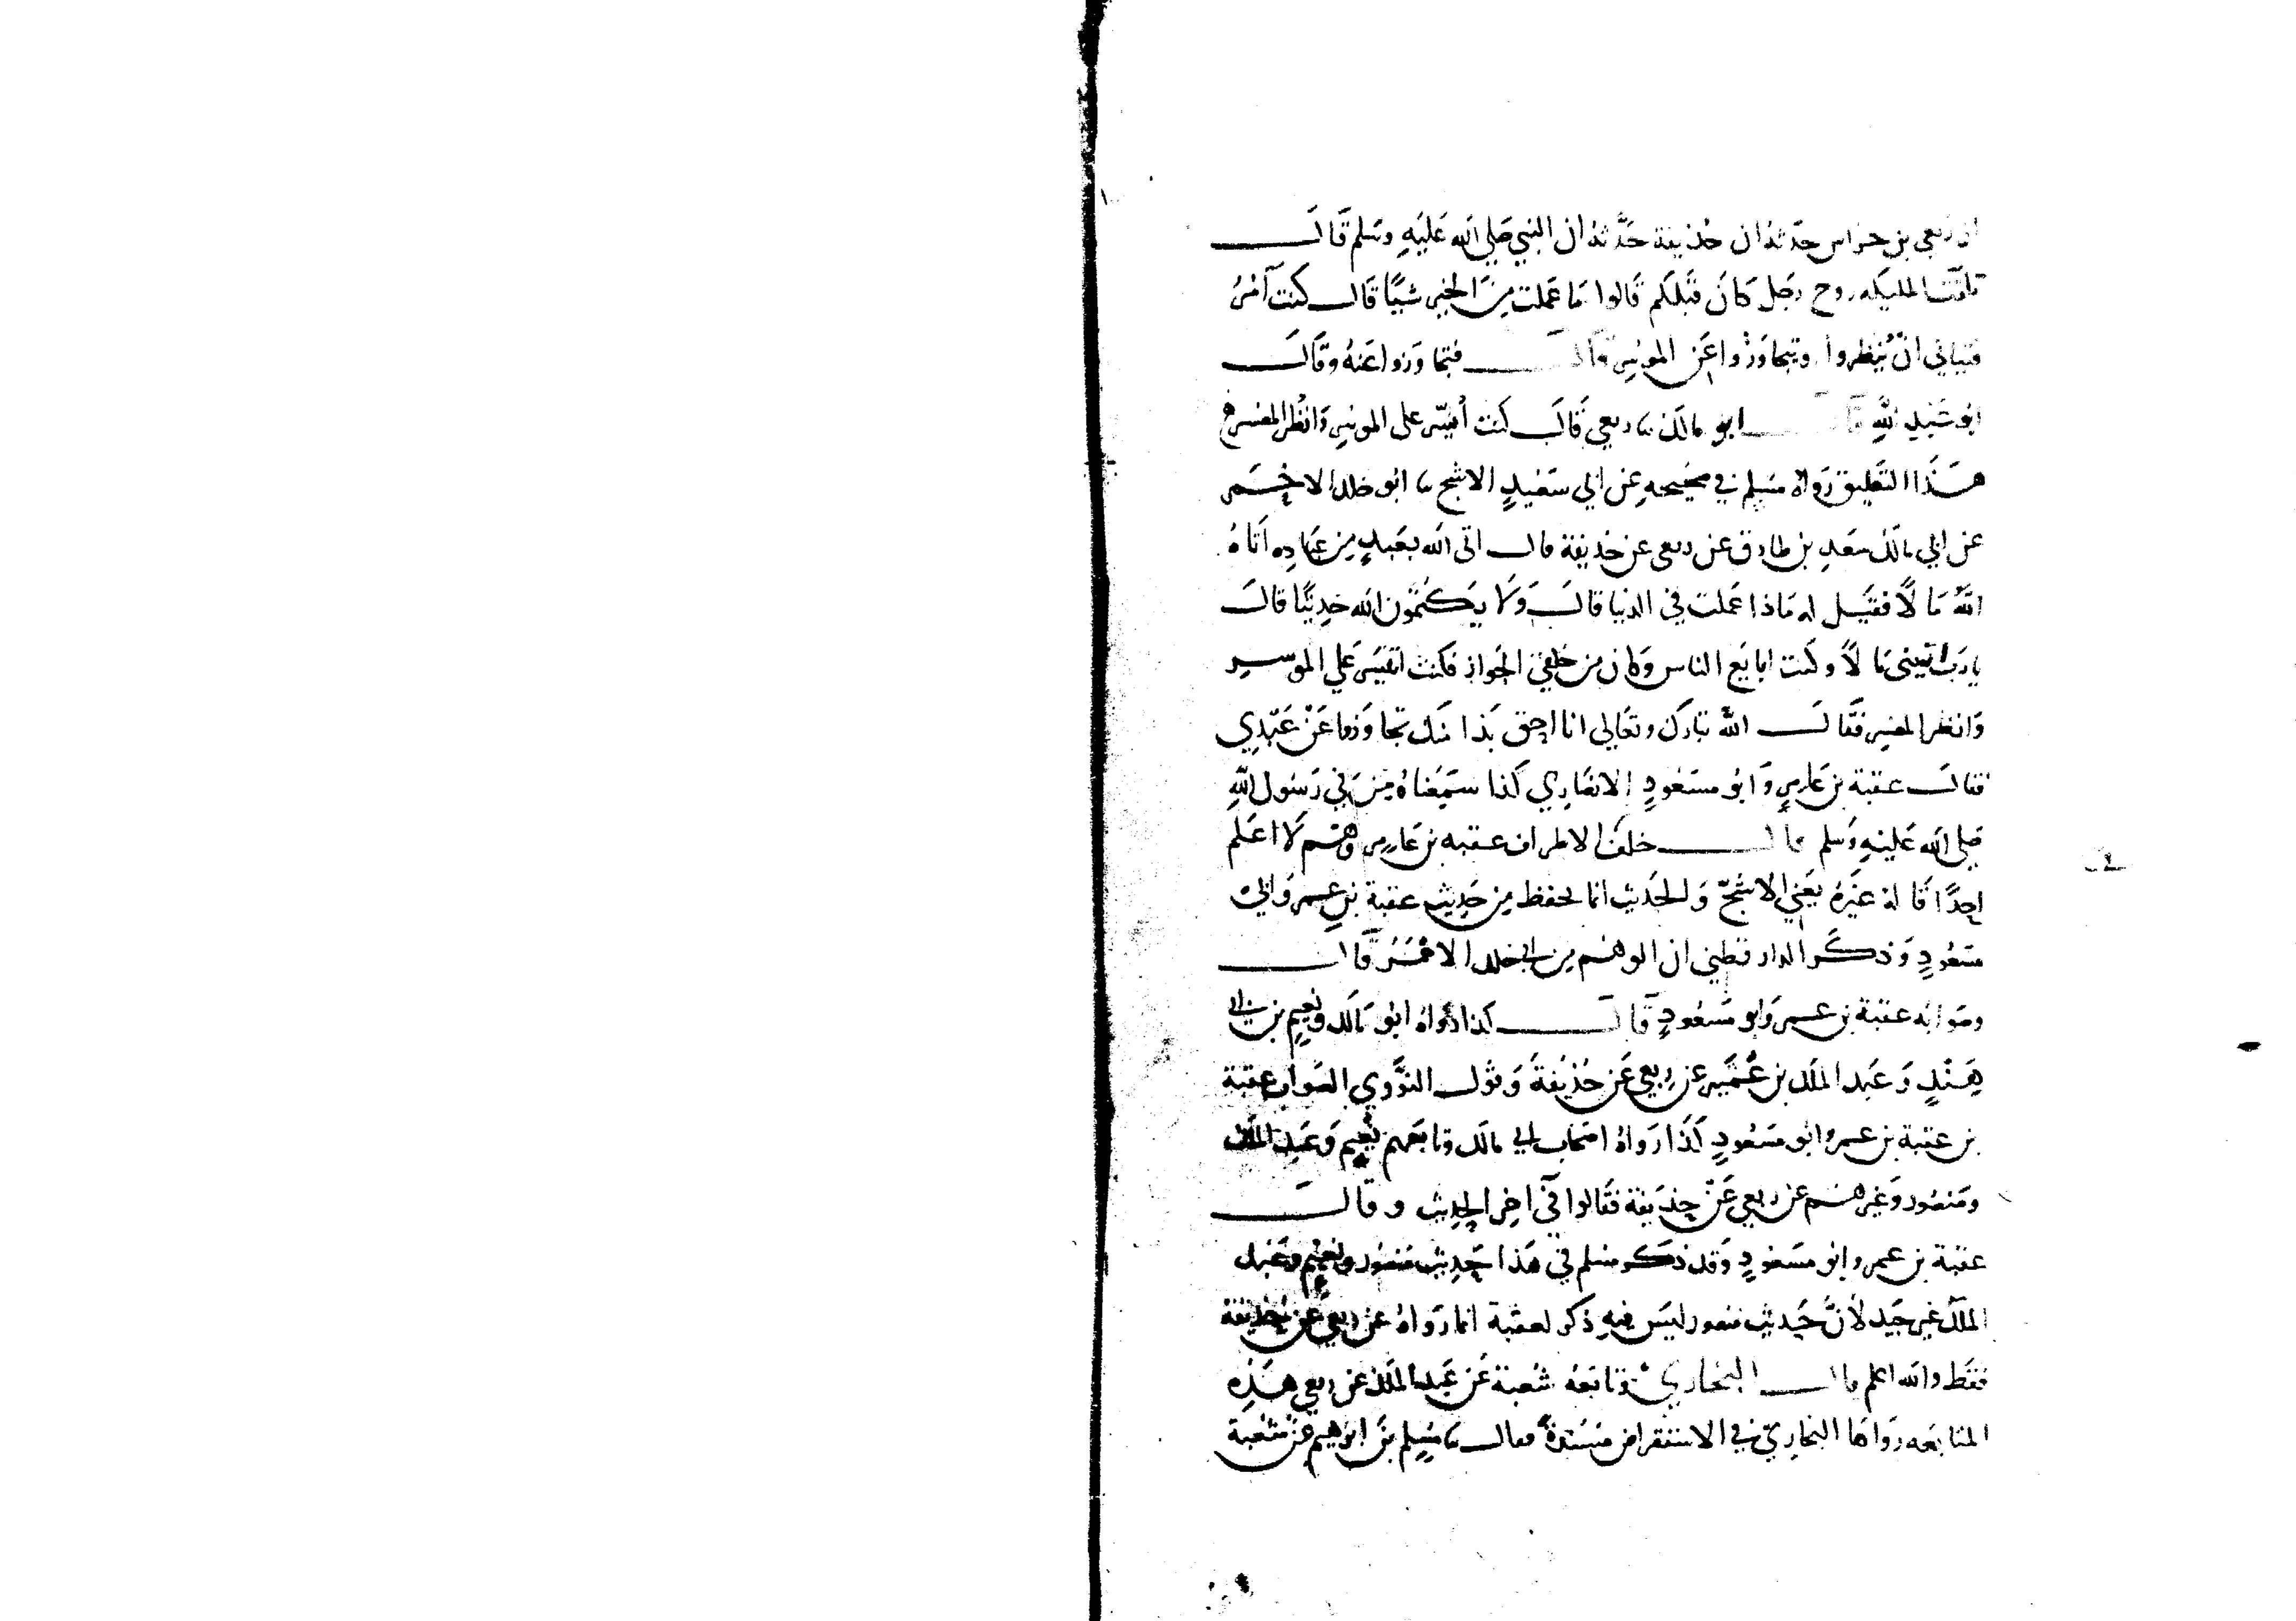 ان ربعي بن حراش حدثه ان حذيفة حَدَّثَهُ ان النبي صَلي الله عَليَهِ وسَلم قَالَ
تلقت المليكه روح رجَل كانَ قبلكم قالوا مَا عَملت مِنَ الخير شيًا قَال كنت آمُرُ
فتياني انْ يُنظروا ويتجاوَزُوا عَن الموسِر قال فتجاوَزوا عَنهُ وقَالَ
ابُو عَبْدِ اللَّهِ قَالَ ابو مالك نا ربعي قَالَ كنت أُيَسّر على الموسِر وَانْظُر المعسر
هَذا التعليق رَواهُ مسْلم في صحيحهِ عَن ابي سَعْيدٍ الاشج نا ابُو خلد الاحمَر
عن ابي مالك سعَدِ بن طارق عن ربعي عن حذيفة قال اتى الله بعَبدٍ مِن عبَادِه اتَاهُ
اللَّهُ مَا لاً فقيل له مَاذا عَملت في الدنيا قالَ وَلاَ يَكتُمُون الله حَدِيثًا قالَ
يا رَب اتيتني مَا لاً وكنت ابايَع الناس وَكان من خلقي الجَواز فكنت اتيَسَر عَلي الموسِر
وَانظر المعسِر فقَالَ الله تبَارَك وتعَالي انا احق بذَا منك تجَاوَزوا عَنْ عَبْدِي
فقالَ عقبة بن عَامِرٍ وَابُو مسَعُودٍ الانصَارِي كَذا سَمِعْنَاهُ مِن في رَسُول اللَّهِ
صَلي الله عَليْهِ وَسلم قال خلف الاطراف عقبه بن عَامِر وَهَم لاَ اعَلم
احَدًا قَالهُ غيَرهُ يَعَني الاشَجّ وَالحَديث انما يحفظ مِن حَديث عقبة بن عمر وَابي
مسَعُودٍ وَذكَر الدارقطني ان الوهَم مِن ابي خلد الاحْمَر قال
وصَوَابه عقبة بن عمر وَابو مسَعُودٍ قَالَ كذا رَواهُ ابُو مَالك ونعيم بن ابي
هِنْدٍ وَعَبد الملك بن عُمَيرٍ عن رِبعي عَن حُذيفةَ وَقوْل النوَّوي الصَواب عقبة
بن عقبة بن عمر وابو مسَعُودٍ كَذَا رَوَاهُ اصحاب ابي مالك وتابعَهم نعيم وَعَبد الملك
ومَنصُور وَغيرهَم عن ربعي عَنْ حِذَيفة فقَالوا في آخِر الحَديث وقالَ
عقبة بن عمر وابو مسَعُودٍ وَقد ذكر مسْلم في هَذا حَديث منصُور ونعيْم وعَبد
الملك غير جَيد لأنَّ حَديث منصور ليَس فيهِ ذكر لعقبة انما رَوَاهُ عن ربعي عن حُذيفة
فقَط والله اعلم قال البخَاري وتابَعَهُ شعْبة عَن عَبد الملك عن ربعي هَذِهِ
المتابعَه رَوَاهَا البخَارِيّ في الاستقراض مسْنَدةً فقال نا مُسْلِم بن ابرهيم عن شعْبة